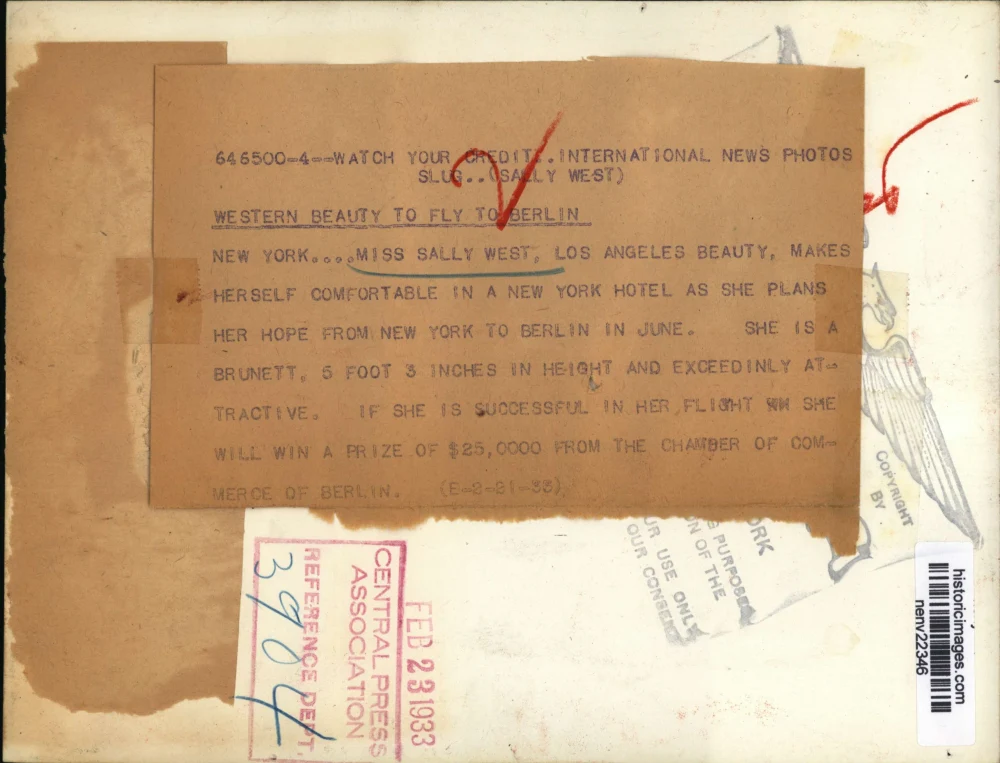 646500-4--WATCH YOUR CREDIT..INTERNATIONAL NEWS PHOTOS
SLUG..(SALLY WEST)
WESTERN BEAUTY TO FLY TO BERLIN
NEW YORK....MISS SALLY WEST, LOS ANGELES BEAUTY, MAKES
HERSELF COMFORTABLE IN A NEW YORK HOTEL AS SHE PLANS
HER HOPE FROM NEW YORK TO BERLIN IN JUNE. SHE IS A
BRUNETT, 5 FOOT 3 INCHES IN HEIGHT AND EXCEEDINLY AT-
TRACTIVE. IF SHE IS SUCCESSFUL IN HER FLIGHT SHE
WILL WIN A PRIZE OF $25,0000 FROM THE CHAMBER OF COM-
MERCE OF BERLIN. (E-2-21-33)
COPYRIGHT
BY
ORK
PURPOSES
N OF THE
UR USE ONLY
OUR CONSENT
FEB 23 1933
CENTRAL PRESS
ASSOCIATION
REFERENCE DEPT.
3904
historicimages.com
nenv22346